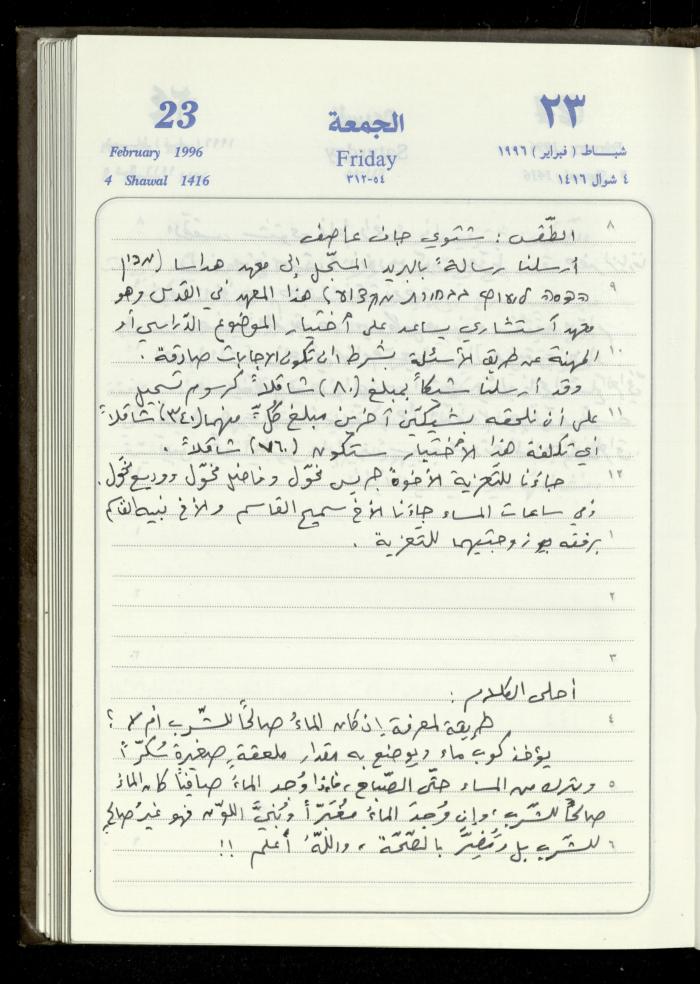 23
February 1996
4 Shawal 1416
الجمعة
Friday
٥٤-٣١٢
٢٣
شبـاط ( فبراير ) ١٩٩٦
٤ شوال ١٤١٦
٨
الطّقس : شتوي جاف عاصف
أرسلنا رسالةً بالبريد المسجّل إلى معهد هداسا (מכון
٩
הדסה לייעוץ) هذا المعهد في القدس وهو
معهد أستشاري يساعد على أختيار الموضوع الدّراسي أو
١٠
المهنة عن طريق الأسئلة بشرط ان تكون الاجابات صادقة .
وقد أرسلنا شيكاً بمبلغ (٨٠) شاقلاً كرسوم تسجيل
١١
على أن نلحقه بشيكين آخرين مبلغ كلٍّ منهما (٣٤٠) شاقلاً
أي تكلفة هذا الأختيار ستكون (٧٦٠) شاقلاً .
١٢
جاءنا للتّعزية الأخوة جريس نخّول وفاضل نخّول ووديع نخّول .
في ساعات المساء جاءنا الأخ سميح القاسم والأخ نبيه القاسم
١
برفقة زوجتيهما للتّعزية .
٢
٣
أحلى الكلام :
٤
طريقة لمعرفة إن كان الماءُ صالحاً للشّرب أم لا ؟
يؤخذ كوب ماء ويوضع به مقدار ملعقةٍ صغيرةٍ سُكرّاً
٥
ويترك من المساء حتّى الصّباح ، فإذا وُجد الماءُ صافياً كان الماءُ
صالحاً للشّرب ، وإن وُجدَ الماءُ مُغبَرّاً وبُنيَّ اللون فهو غيرُ صالحٍ
٦
للشّرب بل ومُضِرّ بالصّحّة ، واللّهُ أعلم !!